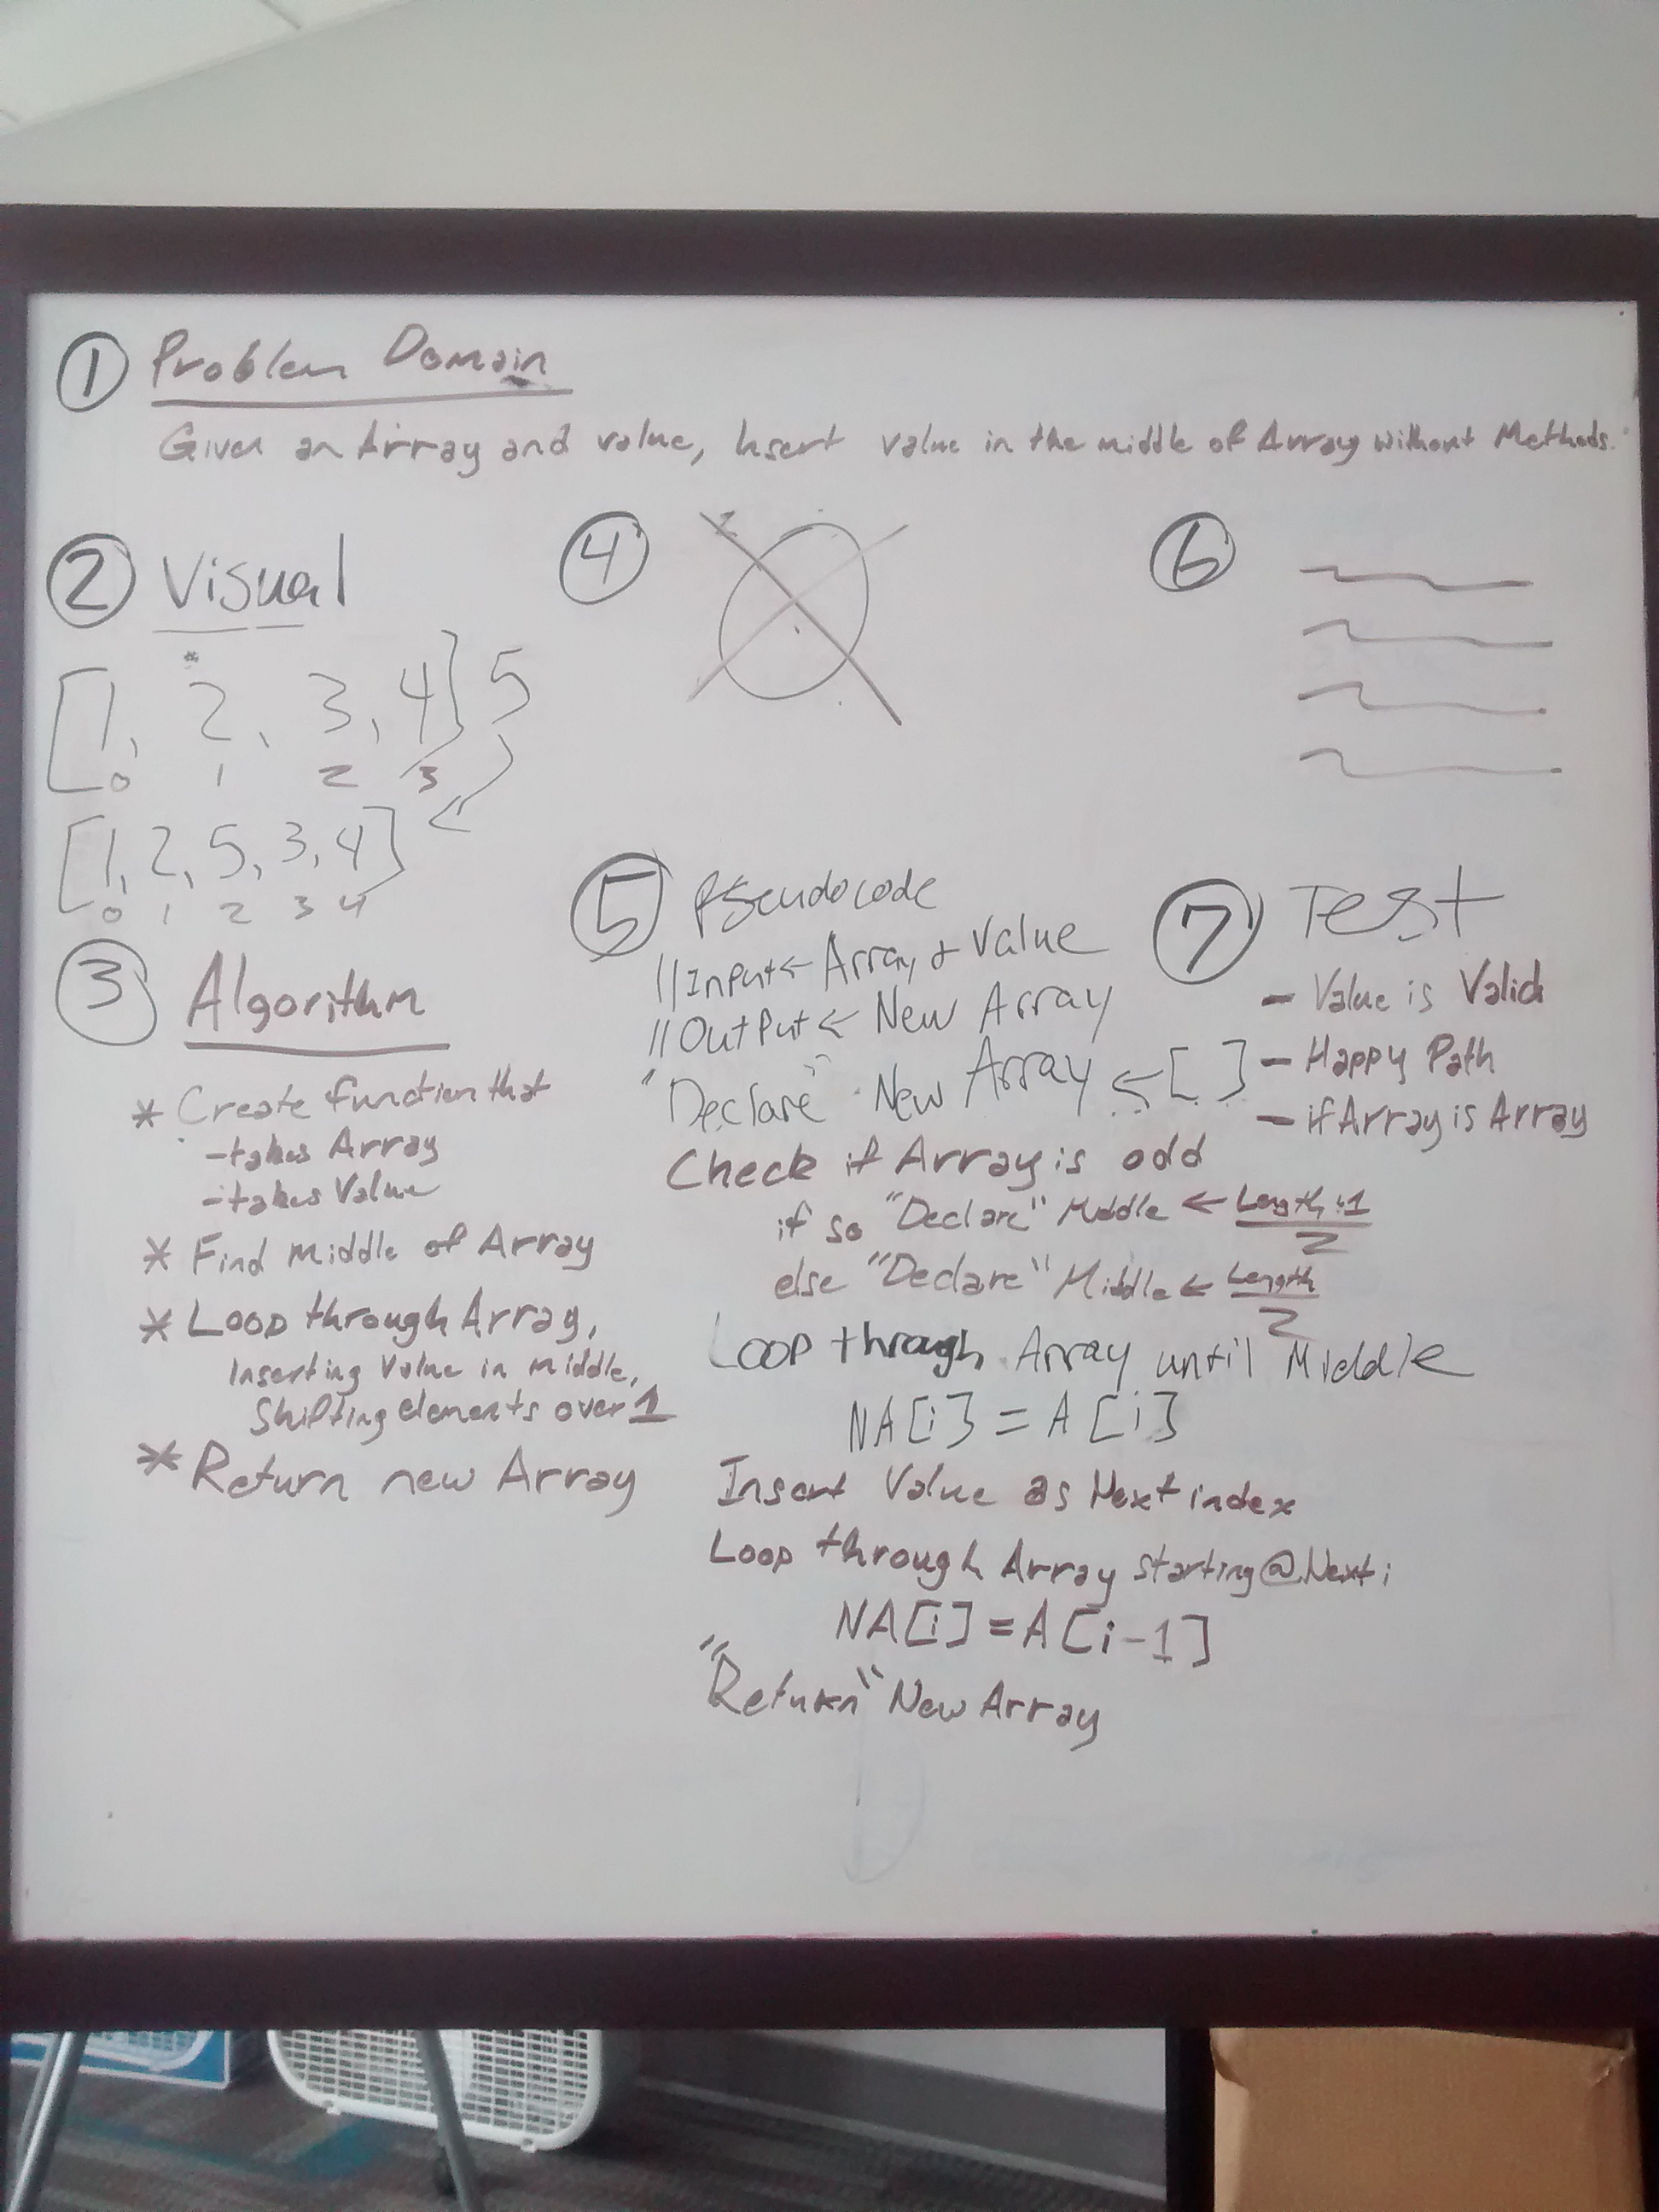 ① Problem Domain
Given an Array and value, Insert value in the middle of Array without Methods.
② Visual
[1, 2, 3, 4] 5
0 1 2 3
[1, 2, 5, 3, 4]
0 1 2 3 4
③ Algorithm
* Create function that
- takes Array
- takes Value
* Find middle of Array
* Loop through Array,
Inserting Value in middle,
Shifting elements over 1
* Return new Array
④
⑤ Pseudocode
// Input ← Array + Value
// OutPut ← New Array
"Declare" New Array ← [ ]
Check if Array is odd
if so "Declare" Middle ← Length 1
2
else "Declare" Middle ← Length
2
Loop through Array until Middle
NA[i] = A[i]
Insert Value as Next index
Loop through Array starting @ Next i
NA[i] = A[i-1]
"Return" New Array
⑥
⑦ Test
- Value is Valid
- Happy Path
- if Array is Array